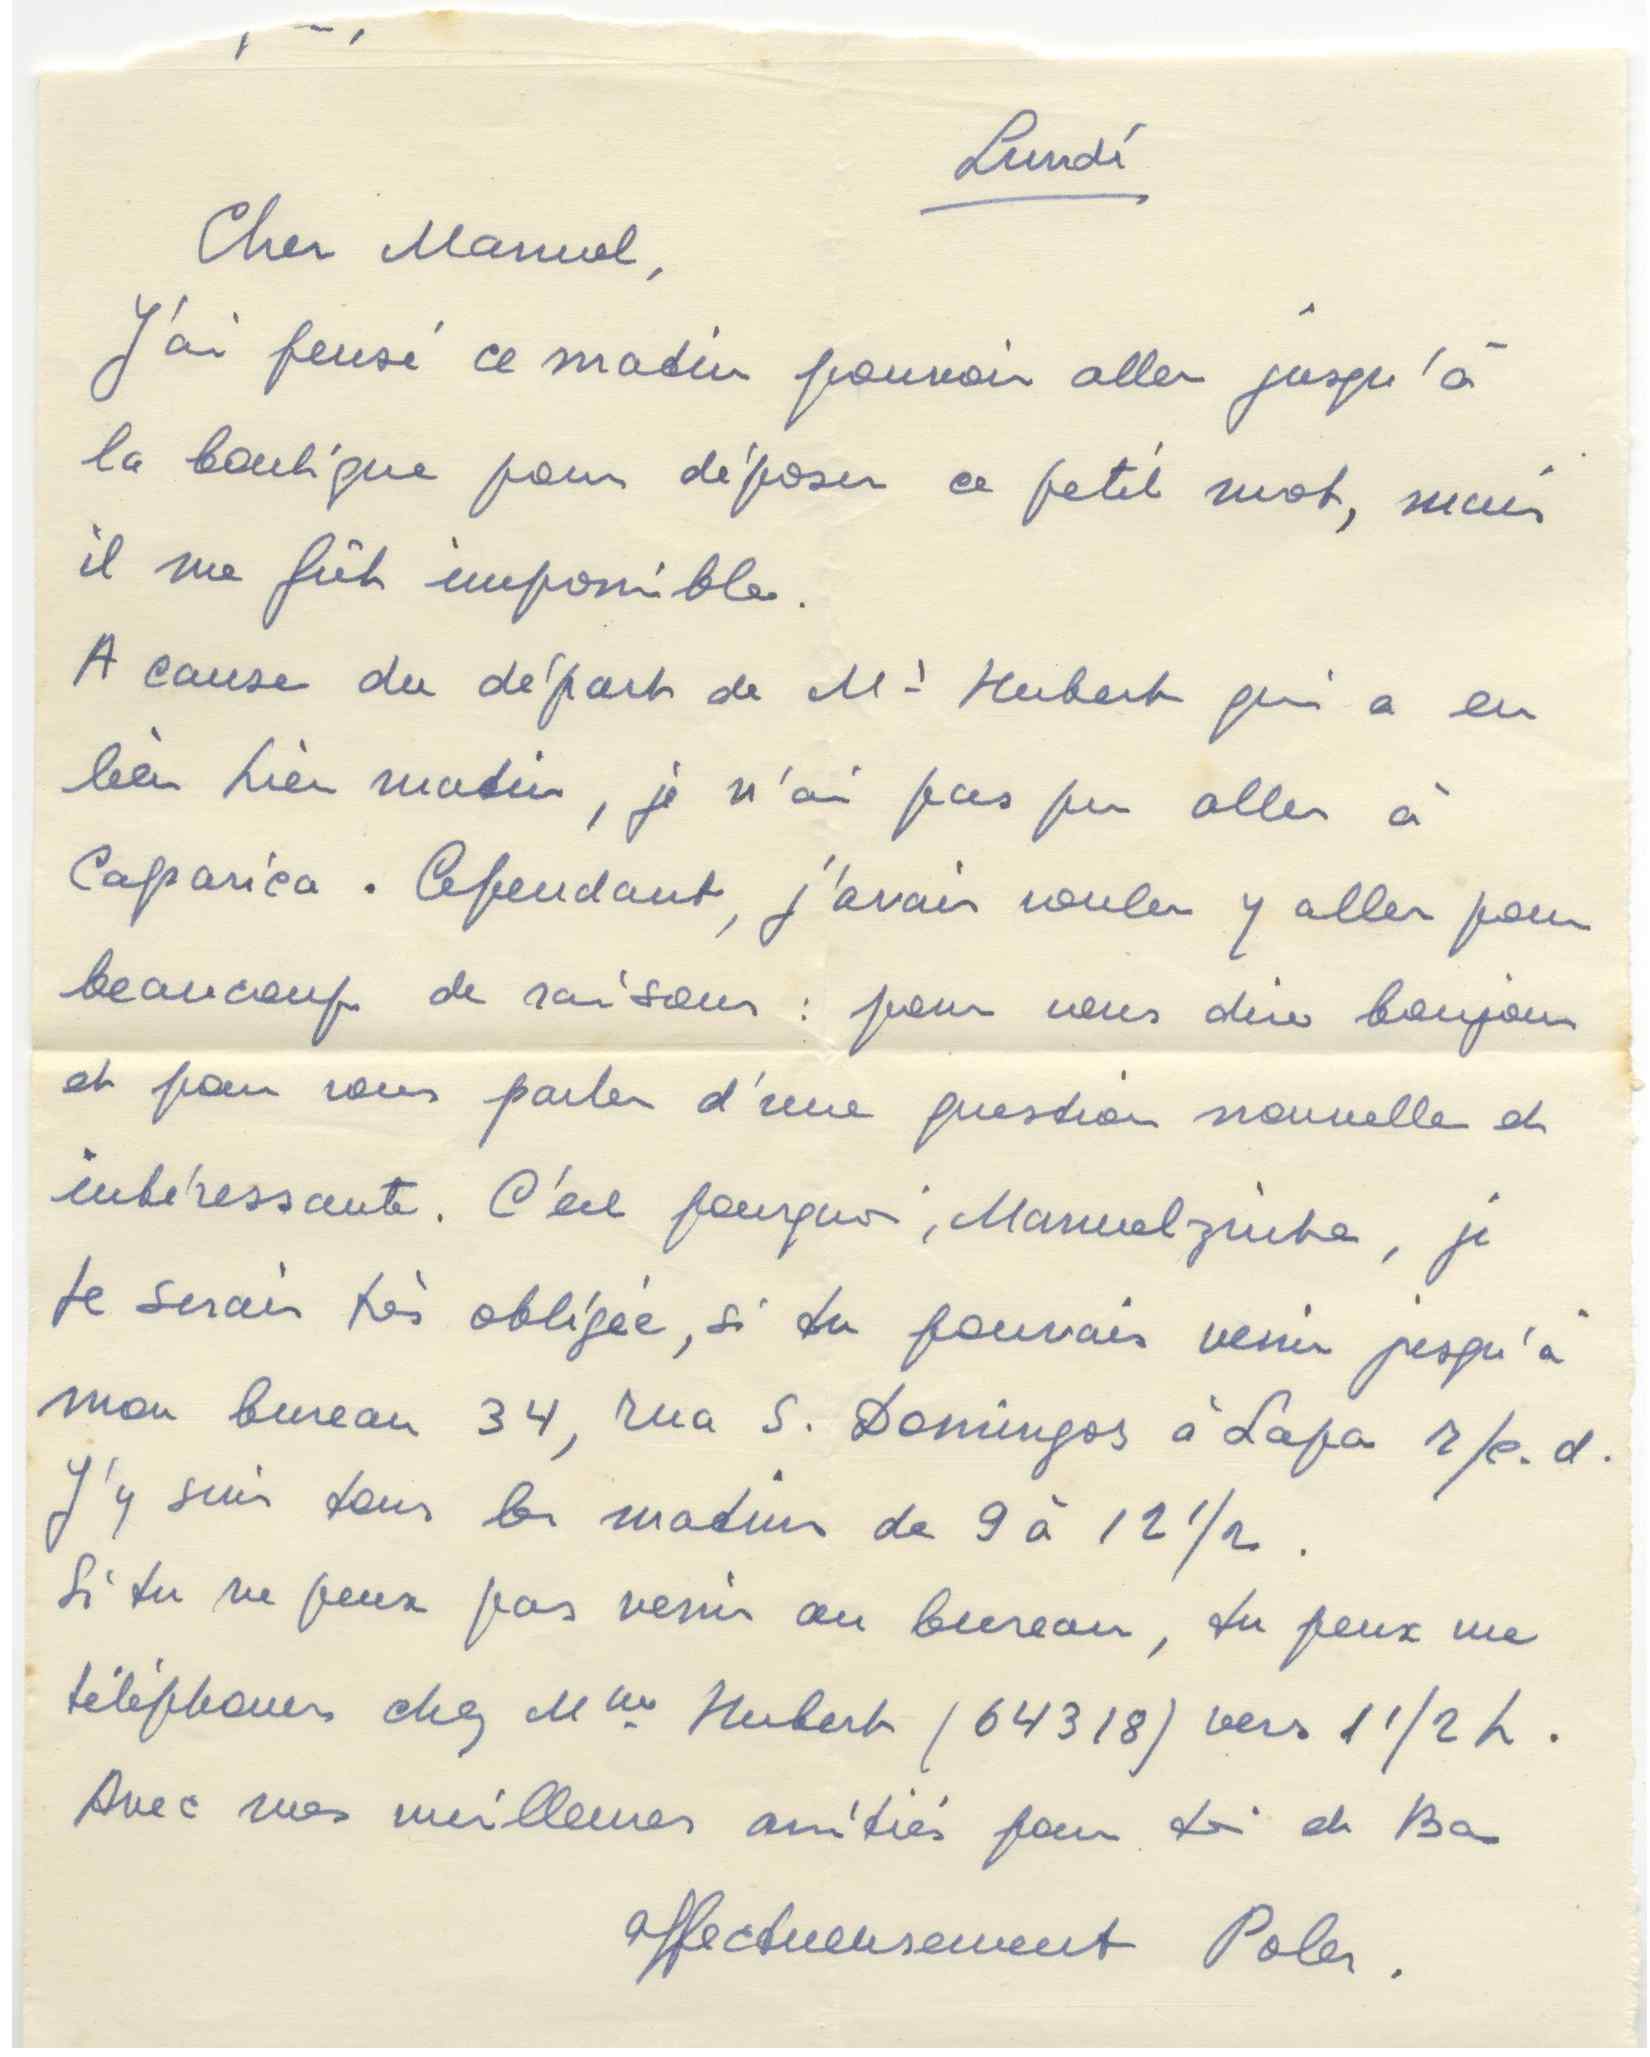 Lundi
Cher Manuel,
J'ai pensé ce matin pouvoir aller jusqu'à
la boutique pour déposer ce petit mot, mais
il me fût impossible.
A cause du départ de Mr Hubert qui a eu
lieu hier matin, je n'ai pas pu aller à
Caparica. Cependant, j'avais voulu y aller pour
beaucoup de raisons : pour vous dire bonjour
et pour vous parler d'une question nouvelle et
intéressante. C'est pourquoi, Manuelzinho, je
te serais très obligée, si tu pouvais venir jusqu'à
mon bureau 34, rua S. Domingos à Lapa r/c. d.
J'y suis tous les matins de 9 à 12 1/2.
Si tu ne peux pas venir au bureau, tu peux me
téléphoner chez Mme Hubert (64318) vers 1 1/2 h.
Avec mes meilleures amitiés pour toi et Ba
affectueusement